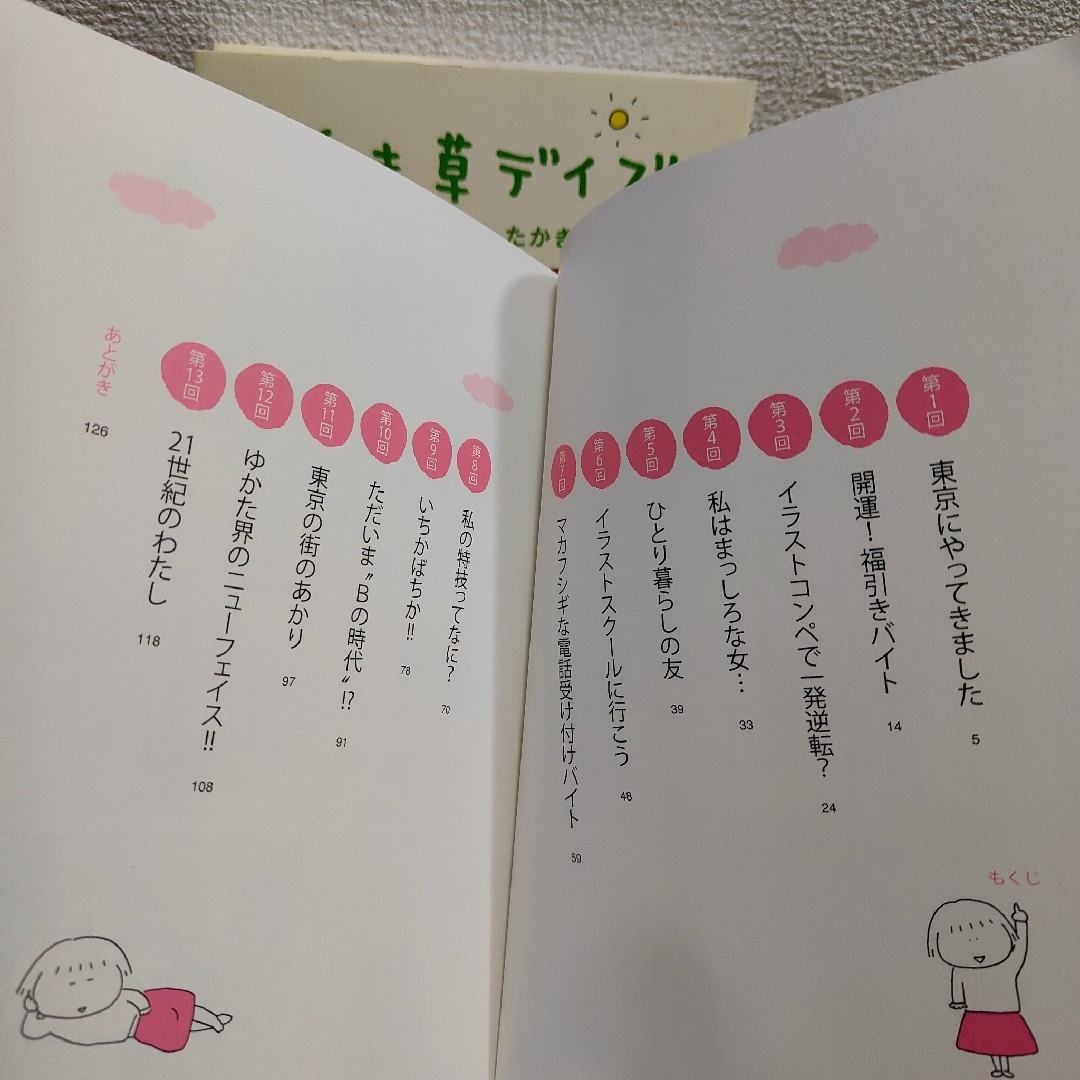 草デイズ
たかぎ
もくじ
第1回
東京にやってきました
5
第2回
開運！福引きバイト
14
第3回
イラストコンペで一発逆転？
24
第4回
私はまっしろな女…
33
第5回
ひとり暮らしの友
39
第6回
イラストスクールに行こう
48
第7回
マカフシギな電話受け付けバイト
59
第8回
私の特技ってなに？
70
第9回
いちかばちか!!
78
第10回
ただいま〝Bの時代〟!?
91
第11回
東京の街のあかり
97
第12回
ゆかた界のニューフェイス!!
108
第13回
21世紀のわたし
118
あとがき
126